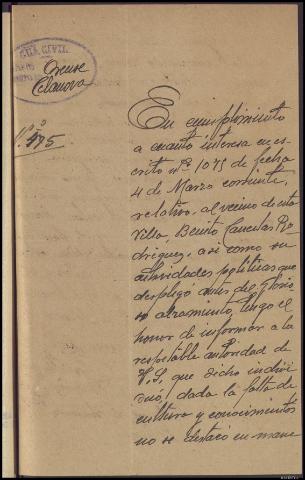 CIVIL
Orense
Celanova
Nº 475
En cumplimiento
a cuanto interesa en es-
crito nº 1075 de fecha
4 de Marzo corriente,
relativo al vecino de esta
Villa, Benito Ro-
driguez, asi como su
actividades politicas que
desplegó antes del Glorio
so alzamiento, tengo el
honor de informar a la
respetable autoridad de
V.S. que dicho indivi
duo, dada la falta de
cultura y conocimientos
no se destacó en mane